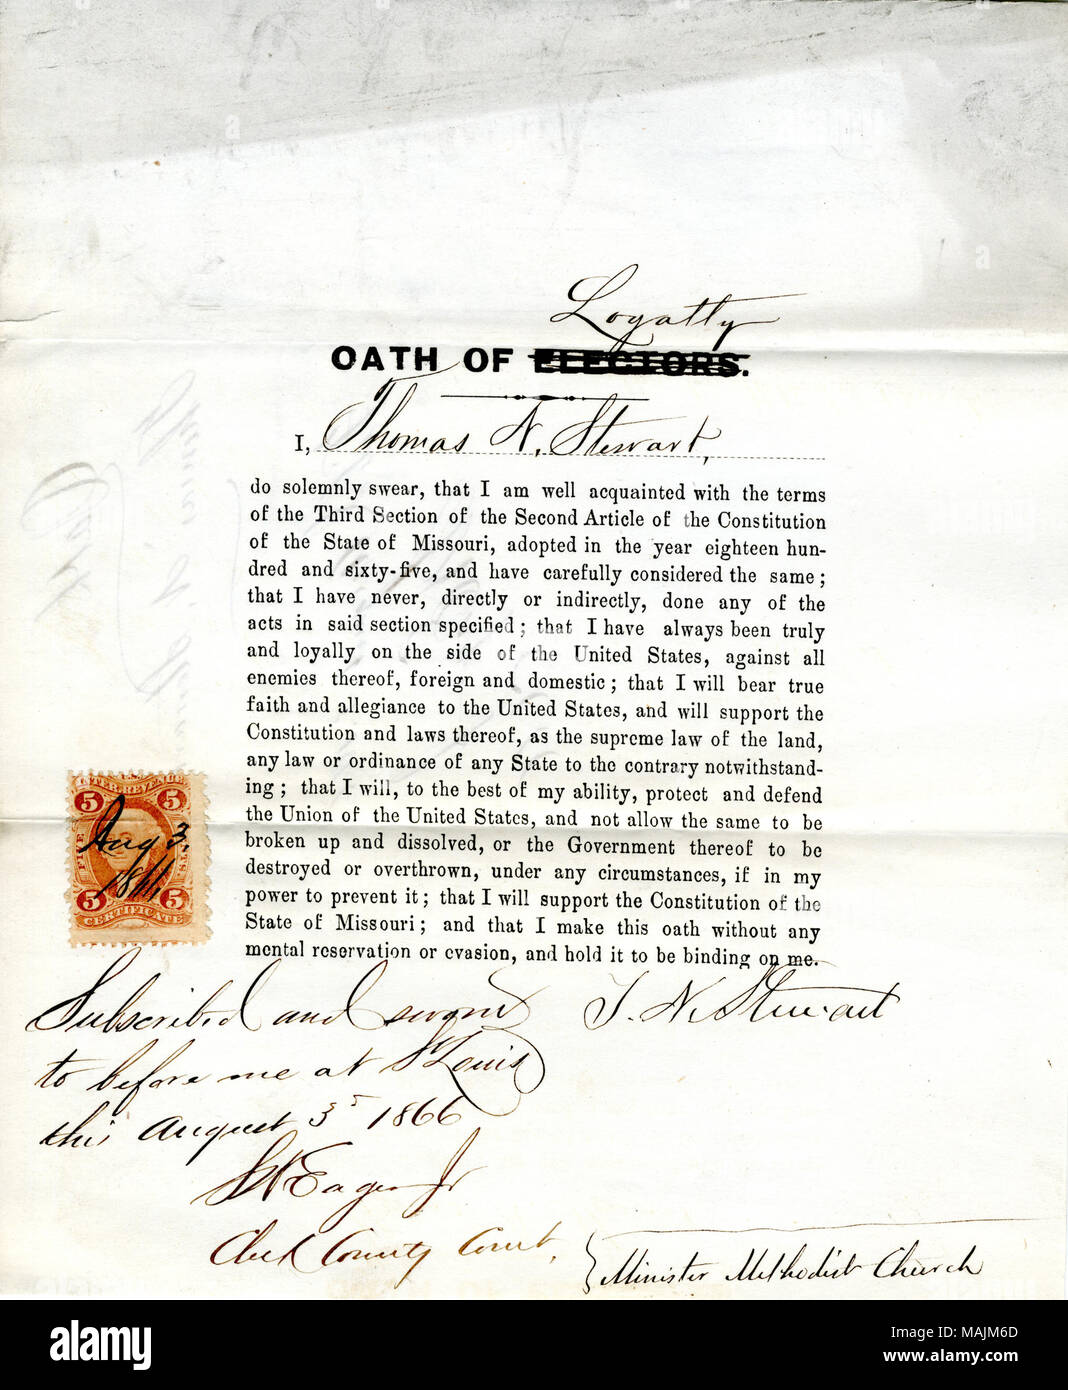 Loyalty
OATH OF ELECTORS.
I, Thomas N. Stewart,
do solemnly swear, that I am well acquainted with the terms
of the Third Section of the Second Article of the Constitution
of the State of Missouri, adopted in the year eighteen hun-
dred and sixty-five, and have carefully considered the same;
that I have never, directly or indirectly, done any of the
acts in said section specified; that I have always been truly
and loyally on the side of the United States, against all
enemies thereof, foreign and domestic; that I will bear true
faith and allegiance to the United States, and will support the
Constitution and laws thereof, as the supreme law of the land,
any law or ordinance of any State to the contrary notwithstand-
ing; that I will, to the best of my ability, protect and defend
the Union of the United States, and not allow the same to be
broken up and dissolved, or the Government thereof to be
destroyed or overthrown, under any circumstances, if in my
power to prevent it; that I will support the Constitution of the
State of Missouri; and that I make this oath without any
mental reservation or evasion, and hold it to be binding on me.
INTER. REVENUE
5 5
Aug 3,
1866
5 5
CERTIFICATE
T. N. Stewart
Subscribed and sworn
to before me at St Louis
this August 3d 1866
Eager Jr
Clerk County Court,
Minister Methodist Church
alamy
Image ID: MAJM6D
www.alamy.com